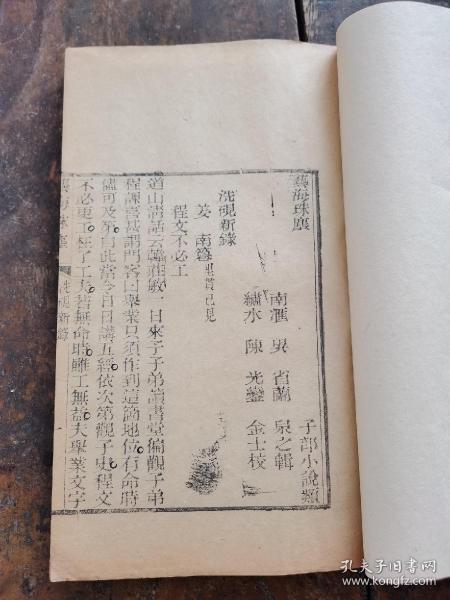 藝海珠塵
子部小說類
南滙 吳省蘭 泉之輯
繡水 陳光鑒 金士校
洗硯新錄
姜南 里貫已見
程文不必工
道山清話云韓莊敏一日來予子弟讀書堂徧觀子弟
程課喜甚謂門客曰舉業只須作到這箇地位有命時
儘可及第自此當今日日講五經依次第觀子史程文
不必更工枉了工夫若無命時雖工無益夫舉業文字
藝海珠塵 洗硯新錄 一
孔夫子旧书网
www.kongfz.com